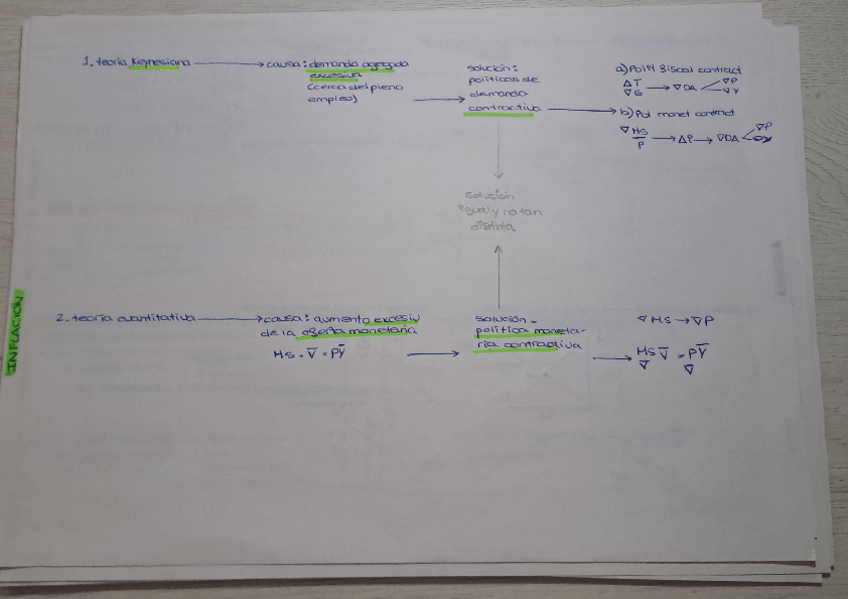 1. teoría Keynesiana → causa: demanda agregada
excesiva
(cerca del pleno
empleo)
solución:
políticas de
demanda
contractiva
a) Polít fiscal contract
ΔT
∇G → ∇DA < ∇P
∇Y
b) Pol monet contract
∇ MS
P → Δr → ∇DA < ∇P
solución
igual y no tan
distinta
INFLACIÓN
2. teoría cuantitativa → causa: aumento excesiv
de la oferta monetaria
MS · V̅ = PY̅
solución -
política moneta-
ria contractiva
∇ MS → ∇P
MS V̅ = PY̅
∇ ∇